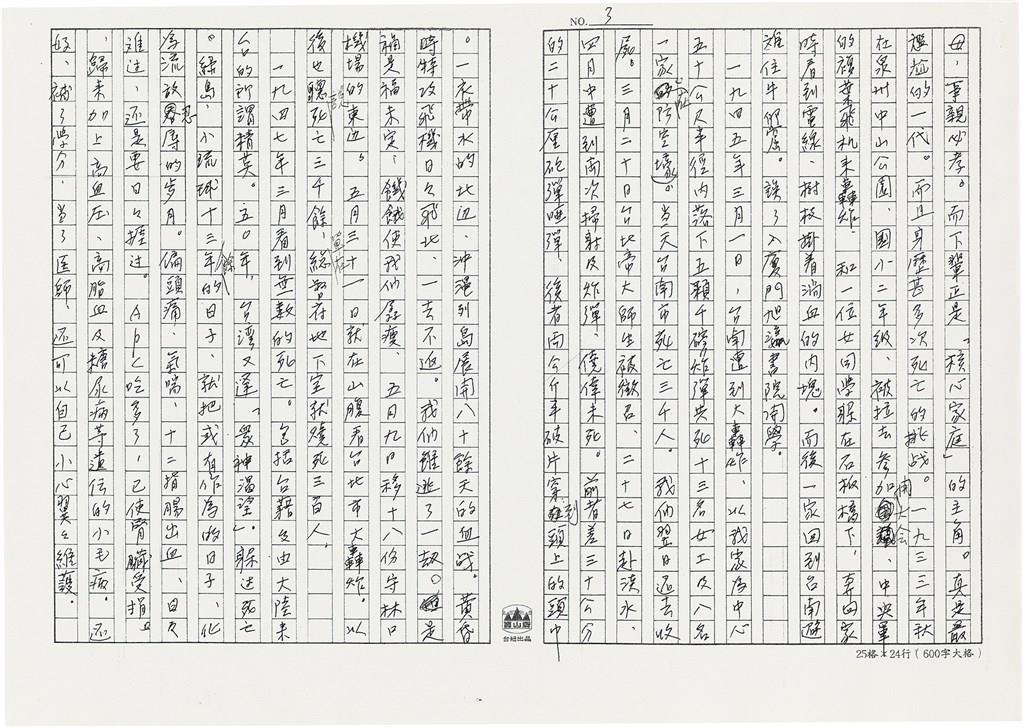 NO. 3
母、事親必孝。而下輩正是「核心家庭」的主角。真是最
尷尬的一代。而且身歷甚多次死亡的挑战。一九三三年秋
在泉州中山公園、國小二年級、被拉去參加開大会、中央軍
的殒葉飛机来轟炸、和一位女同學躲在石板橋下、專回家
時看到電線、樹枝掛着淌血的肉塊。而後一家回到台南避
难住牛㑔窟。誤了入廈門旭瀛書院開學。
一九四五年三月一日、台南遭到大轟炸、以我家為中心
五十公尺半徑内落下五顆千磅炸彈共死十三名女工及八名
一家在防空壕。當天台南市死亡三千人。我們翌日返去收
屍。三月二十日台北帝大師生被徵召、二十七日赴淡水、
四月中遭到兩次掃射及炸彈、僥倖未死。前者差三十公分
的二十公厘砲彈啞彈、後者兩公斤半破片穿到頭上的頭巾
。一衣帶水的北辺、沖繩列島展開八十餘天的血战。黃昏
時特攻飛機日々飛北、一去不返。我們雖逃了一劫。是
福是禍未定、饑餓使我們孱瘦、五月九日移十八份守林口
機場的東边。五月三十一日就在山腹看台北市大轟炸。以
後也聽說死亡三千餘、總督府地下室就燒死三百人。
一九四七年三月看到無数的死亡。包括台籍及由大陸来
台的所謂精英。五〇年、台湾又逢「眾神渴望」。躲过死亡
。綠島、小琉球十三年餘的日子、就把或有作為的日子、化
為流放忍辱的岁月。偏頭痛、氣喘、十二指腸出血、日々
难过、还是要日々捱过。Abc吃多了、已使腎臟受損
、歸来加上高血压、高脂血及糖尿病等遺伝的小毛病。还
好、補了學分、当了医師、还可以自己小心翼々維護。
台紐出品
25格×24行（600字大格）